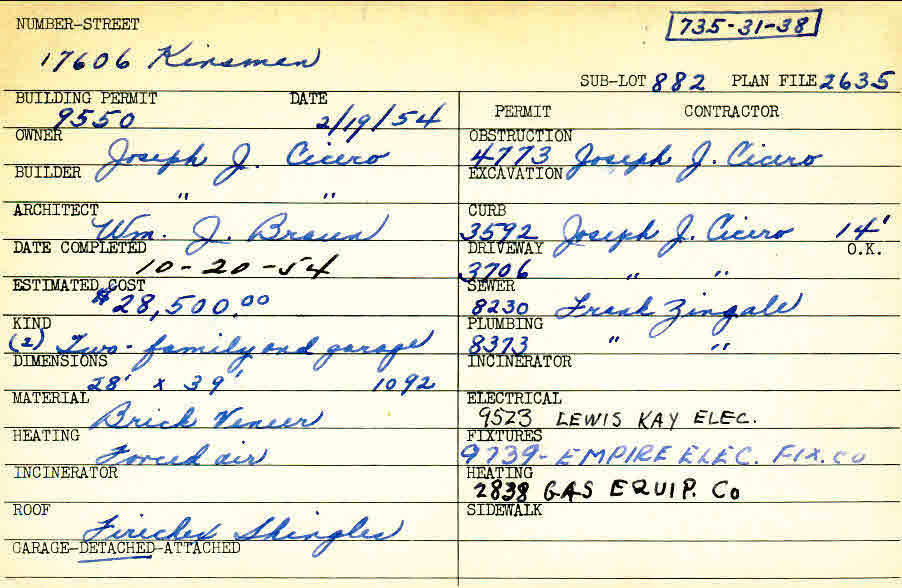 NUMBER-STREET
735-31-38
17606 Kinsman
SUB-LOT 882 PLAN FILE 2635
BUILDING PERMIT DATE
9550 2/19/54
OWNER
Joseph J. Cicero
BUILDER
" "
ARCHITECT
Wm. J. Braun
DATE COMPLETED
10-20-54
ESTIMATED COST
$28,500.00
KIND
(2) Two-family and garage
DIMENSIONS
28' x 39' 1092
MATERIAL
Brick Veneer
HEATING
Forced air
INCINERATOR
ROOF
Firechex Shingles
GARAGE-DETACHED-ATTACHED
PERMIT CONTRACTOR
OBSTRUCTION
4773 Joseph J. Cicero
EXCAVATION
CURB
3592 Joseph J. Cicero 14'
DRIVEWAY O.K.
3706 " "
SEWER
8230 Frank Zingale
PLUMBING
8373 " "
INCINERATOR
ELECTRICAL
9523 LEWIS KAY ELEC.
FIXTURES
9739- EMPIRE ELEC. FIX. CO
HEATING
2838 GAS EQUIP. Co
SIDEWALK